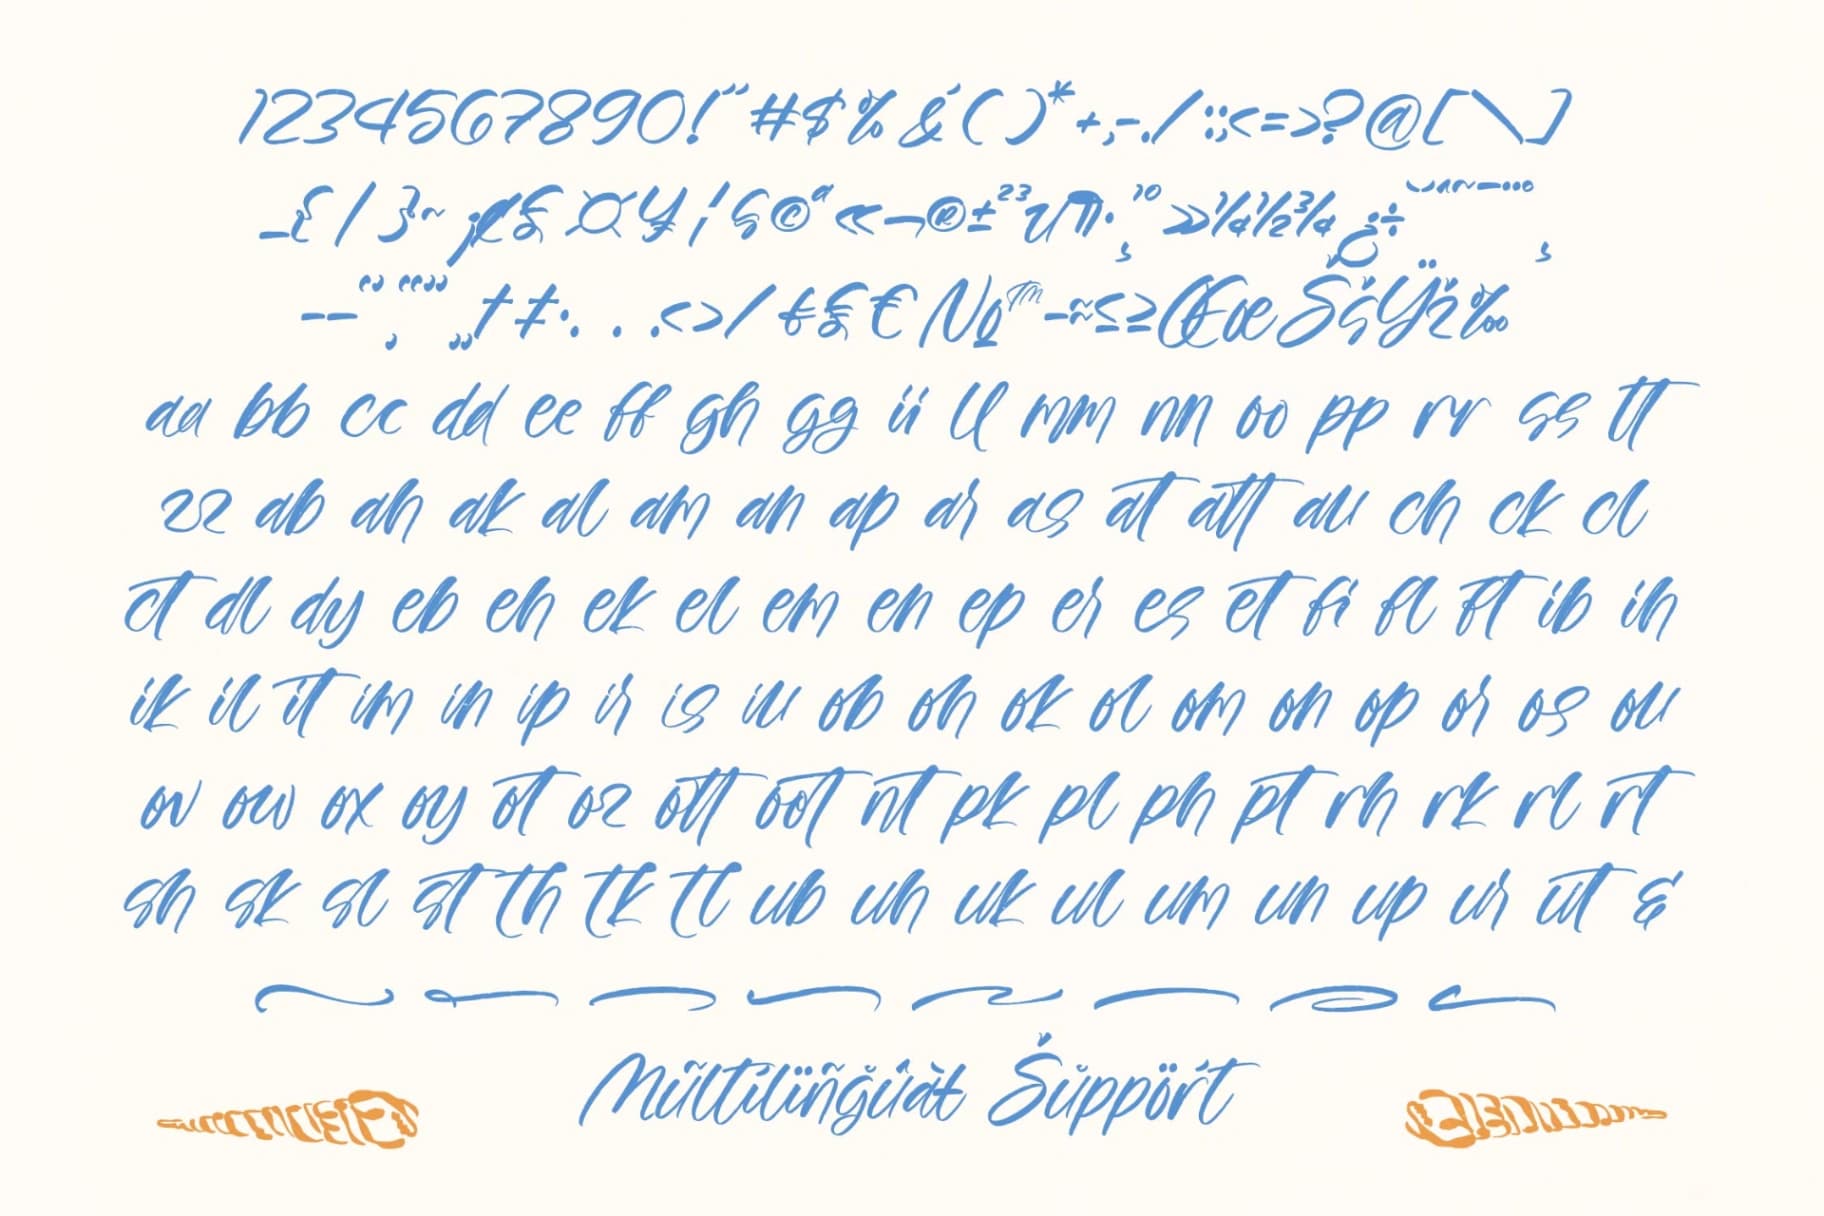 1234567890!"#$%&'()*+,-./:;<=>?@[\]
_{|}~¡¢£¤¥¦§©ª«¬®±²³µ¶·¸¹º»¼½¾¿÷˘˙˛˜¯¨˚¸
–—‘’‚“”„†‡•...‹›⁄₣₤€№™−≈≤≥ŒœŠšŸž‰
aa bb cc dd ee ff gh gg ii ll mm nn oo pp rr ss tt
zz ab ah ak al am an ap ar as at att au ch ck cl
ct dl dy eb eh ek el em en ep er es et fi fl ft ib ih
ik il it im in ip ir is iu ob oh ok ol om on op or os ou
ov ow ox oy ot oz ott oot nt pk pl ph pt rh rk rl rt
sh sk sl st th tk tl ub uh uk ul um un up ur ut &
Mũltílïñğûàŧ Śŭppört